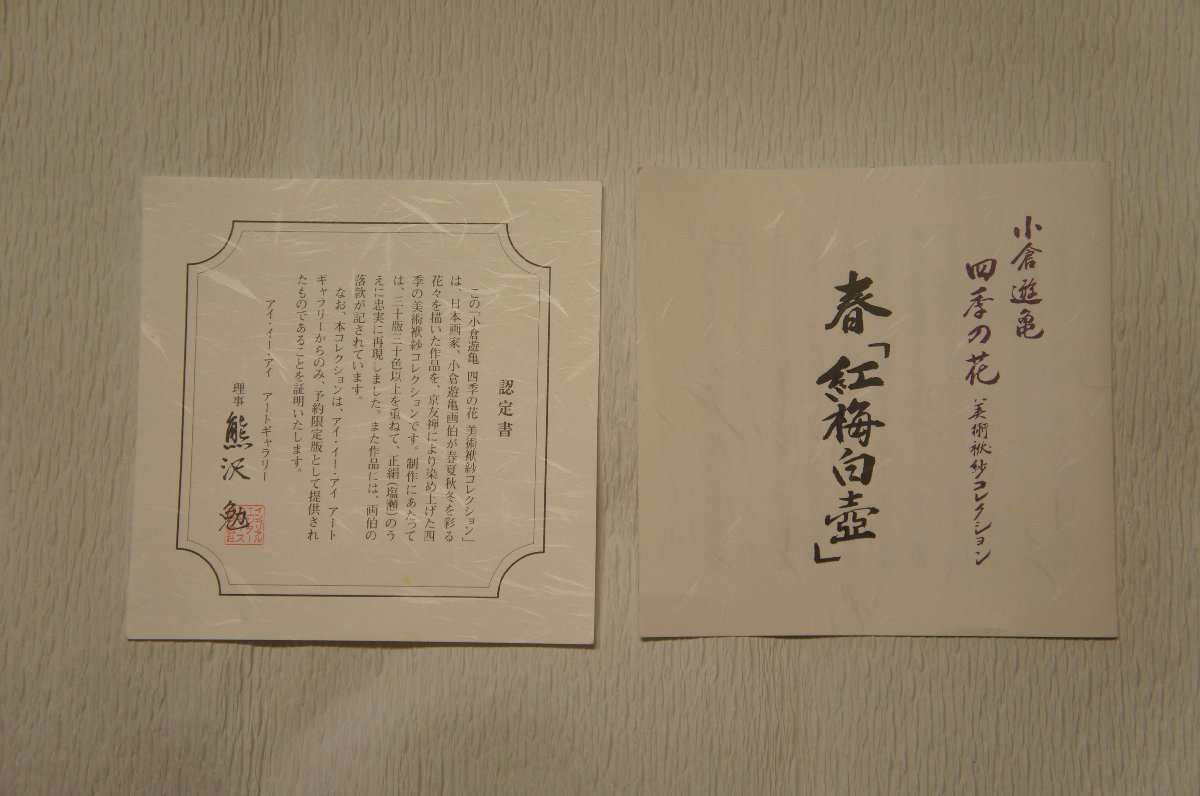 認定書
この「小倉遊亀 四季の花 美術袱紗コレクション」
は、日本画家、小倉遊亀画伯が春夏秋冬を彩る
花々を描いた作品を、京友禅により染め上げた四
季の美術袱紗コレクションです。制作にあたって
は、三十版三十色以上を重ねて、正絹(塩瀬)のう
えに忠実に再現しました。また作品には、画伯の
落款が記されています。
なお、本コレクションは、アイ・イー・アイ アート
ギャラリーからのみ、予約限定版として提供され
たものであることを証明いたします。
アイ・イー・アイ アートギャラリー
理事 熊沢 勉
小倉遊亀
四季の花 美術袱紗コレクション
春「紅梅白壺」